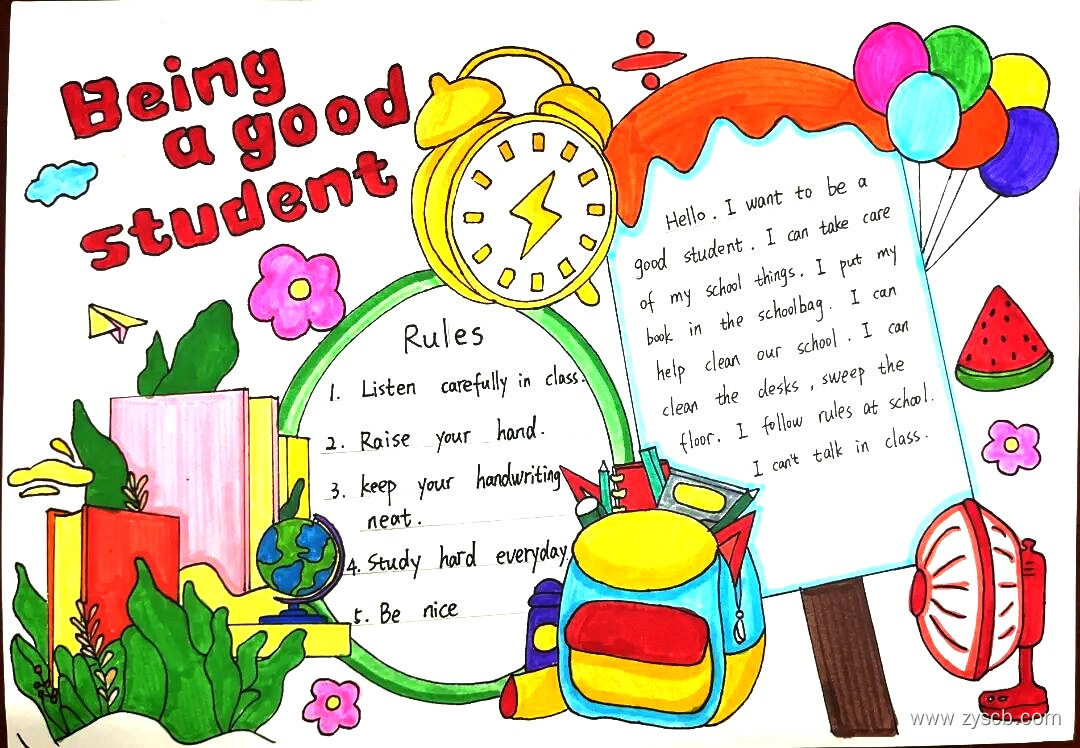 Being
a good
student
Rules
1. Listen carefully in class.
2. Raise your hand.
3. keep your handwriting
neat.
4. Study hard everyday.
5. Be nice
Hello. I want to be a
good student. I can take care
of my school things. I put my
book in the schoolbag. I can
help clean our school. I can
clean the desks, sweep the
floor. I follow rules at school.
I can't talk in class.
www.zyscb.com